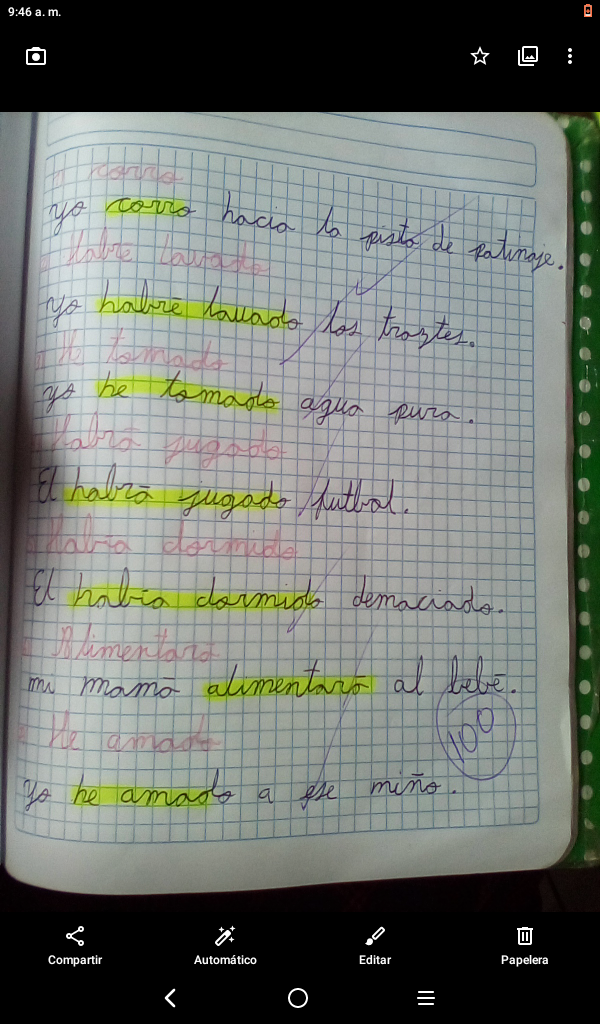 9:46 a. m.
corro
yo corro hacia la pista de patinaje.
Habre lavado
yo habre lavado los traztes.
He tomado
yo he tomado agua pura.
Habrá jugado
El habrá jugado futbal.
Había dormido
El había dormido demaciado.
Alimentará
mi mamá alimentará al bebé.
100
He amado
yo he amado a ese miño.
Compartir
Automático
Editar
Papelera